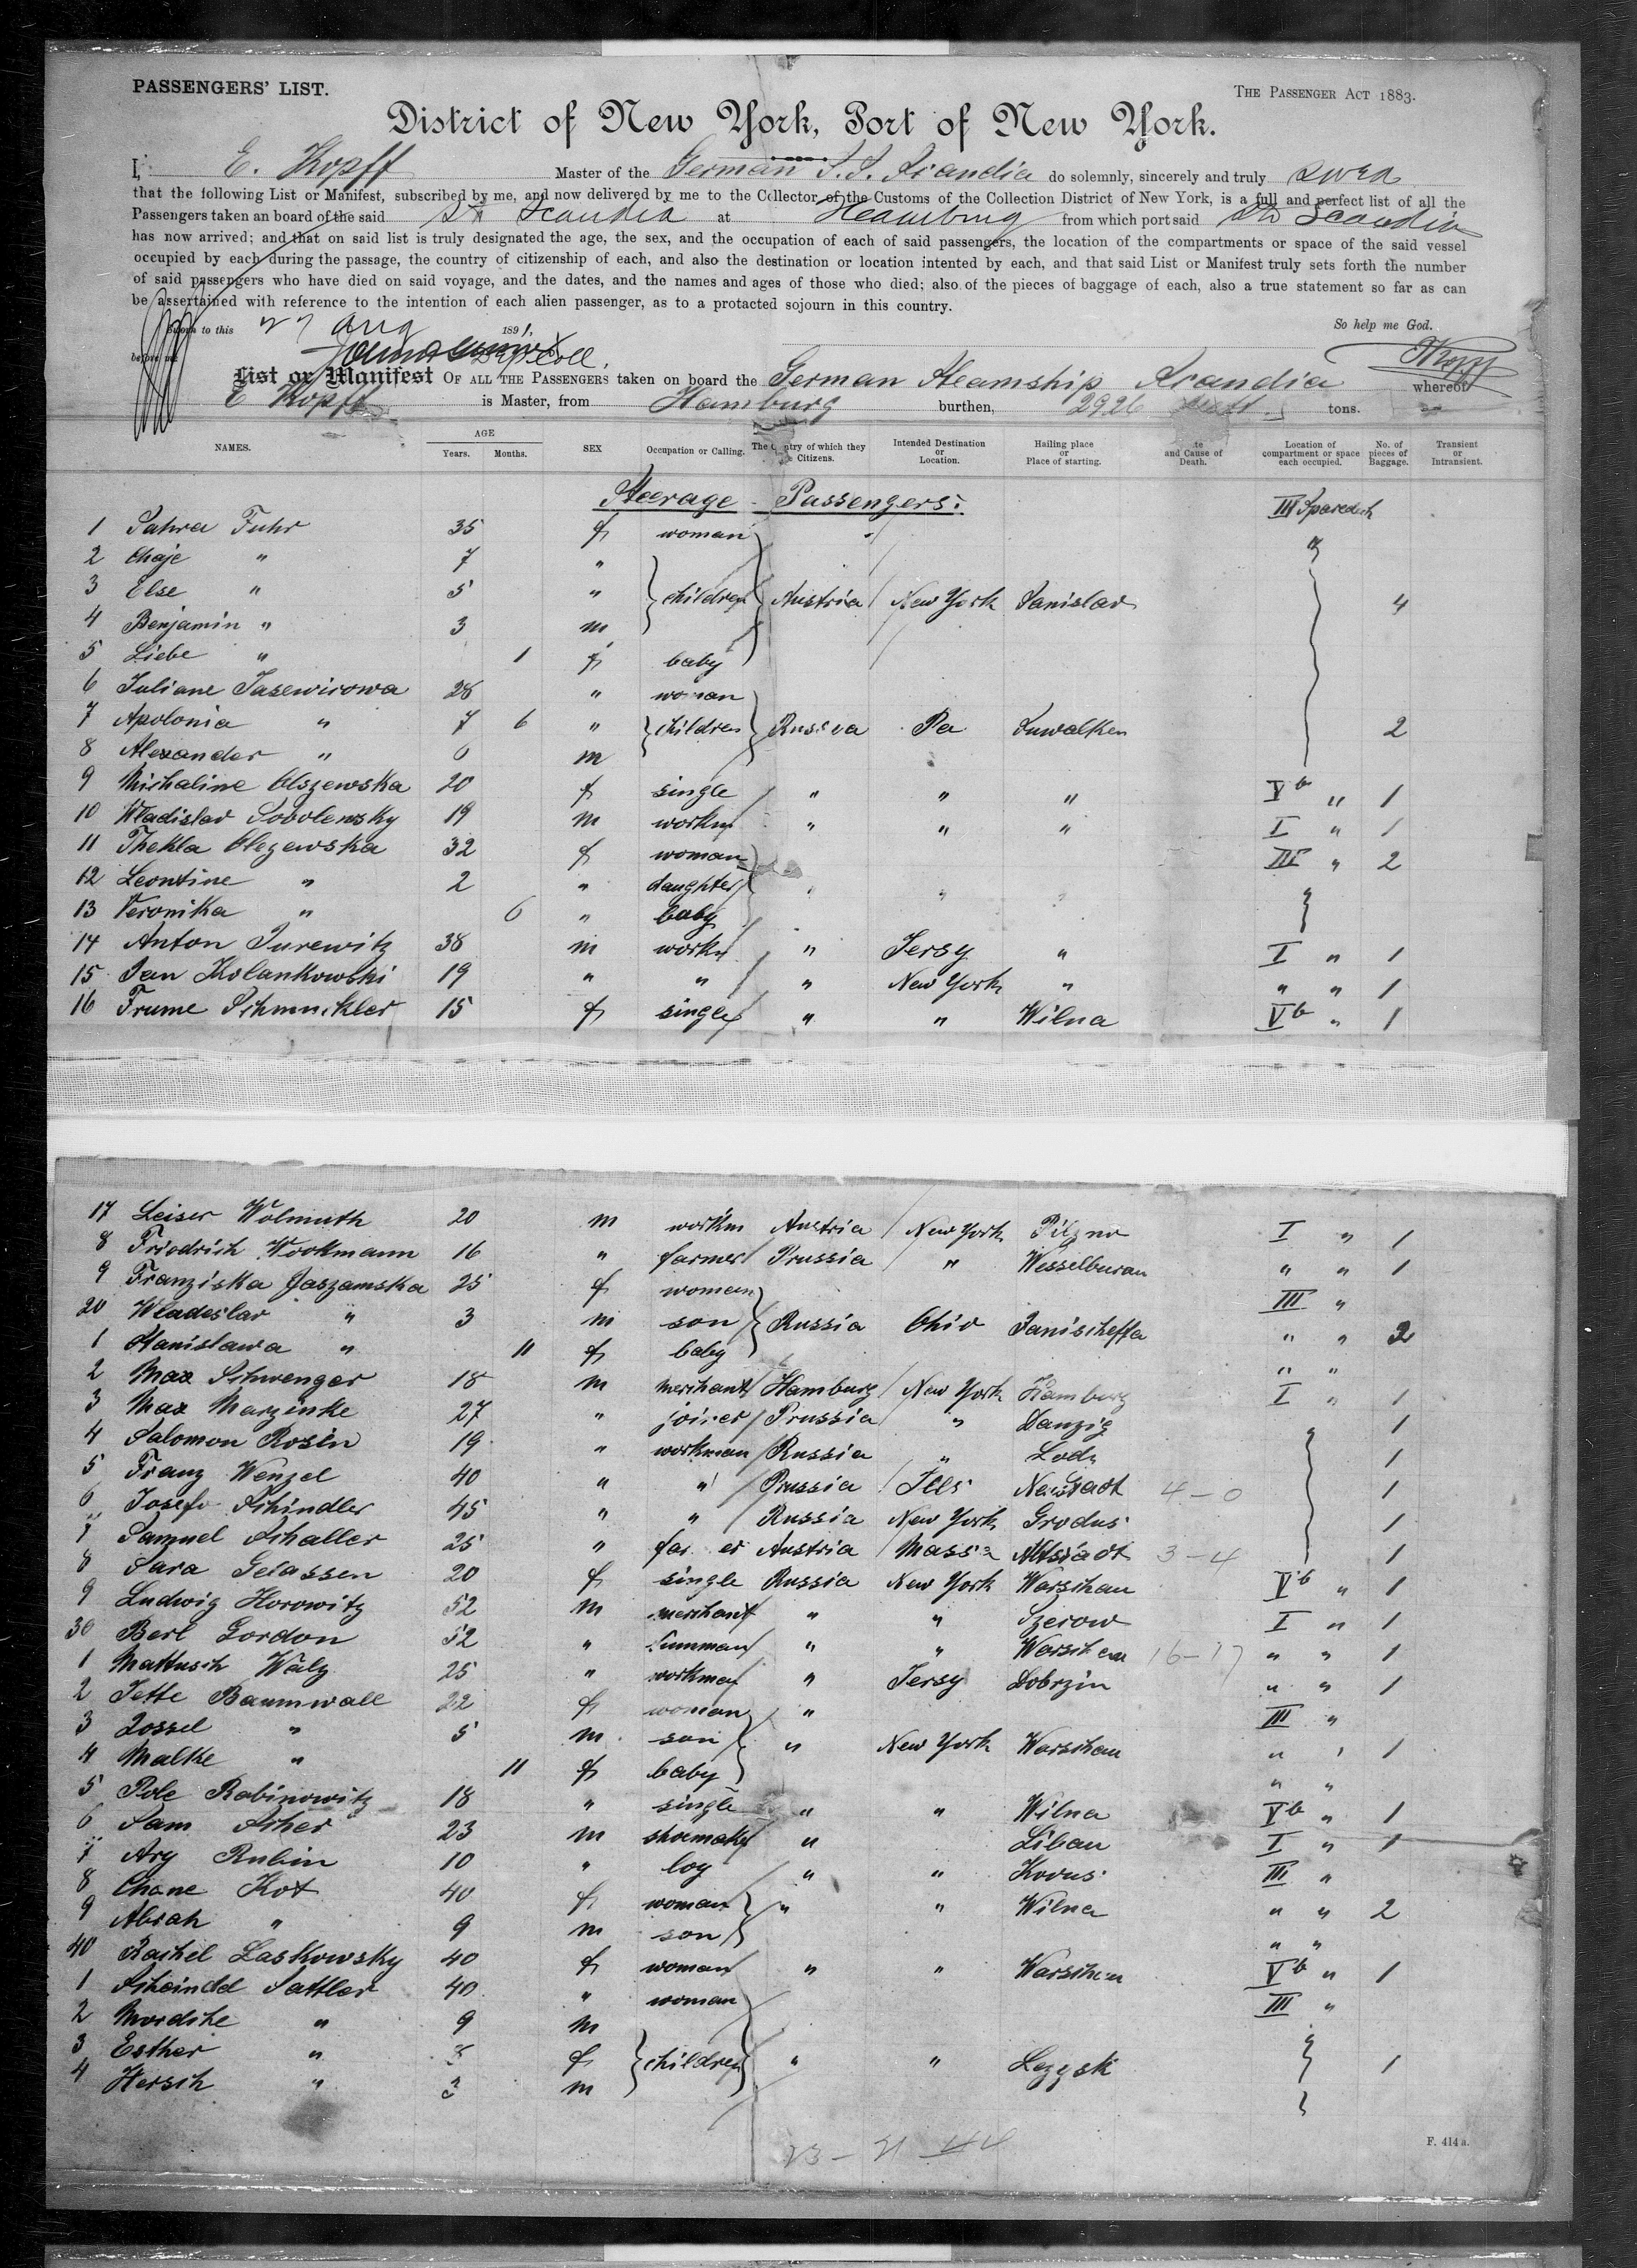 PASSENGERS' LIST. THE PASSENGER ACT 1883.
District of New York, Port of New York.
I, E. Kopff Master of the German S.S. Scandia do solemnly, sincerely and truly swea
that the following List or Manifest, subscribed by me, and now delivered by me to the Collector of the Customs of the Collection District of New York, is a full and perfect list of all the
Passengers taken an board of the said Scandia at Hamburg from which port said Scandia
has now arrived; and that on said list is truly designated the age, the sex, and the occupation of each of said passengers, the location of the compartments or space of the said vessel
occupied by each during the passage, the country of citizenship of each, and also the destination or location intented by each, and that said List or Manifest truly sets forth the number
of said passengers who have died on said voyage, and the dates, and the names and ages of those who died; also of the pieces of baggage of each, also a true statement so far as can
be assertained with reference to the intention of each alien passenger, as to a protacted sojourn in this country.
Sworn to this 27 Aug 1891, So help me God.
before me Dep. Coll. Kopff
List or Manifest OF ALL THE PASSENGERS taken on board the German Steamship Scandia whereof
E Kopff is Master, from Hamburg burthen, 2926 tons.
NAMES. AGE Years. Months. SEX Occupation or Calling. The Country of which they are Citizens. Intended Destination or Location. Hailing place or Place of starting. Date and Cause of Death. Location of compartment or space each occupied. No. of pieces of Baggage. Transient or Intransient.
Steerage Passengers: III Sparedeck
1 Sahra Fuhr 35 f woman
2 Chaje " 7 "
3 Else " 5 " children Austria New York Stanislav 4
4 Benjamin " 3 m
5 Liebe " 1 f baby
6 Juliane Jasewicowa 28 " woman
7 Apolonia " 7 6 " children Russia Pa Suwalken 2
8 Alexander " 6 m
9 Michaline Olszewska 20 f single " " " Vb " 1
10 Wladislav Sobolewsky 19 m workm " " " I " 1
11 Thekla Olezewska 32 f woman III " 2
12 Leontine " 2 " daughter " " "
13 Veronika " 6 " baby
14 Anton Jurewitz 38 m workm " Jersy " I " 1
15 Jan Kolankowski 19 " " " New York " " " 1
16 Frume Schmuckler 15 f single " " Wilna Vb " 1
17 Leiser Wolmuth 20 m workm Austria New York Pilzno I " 1
8 Friedrich Wookmann 16 " farmer Prussia " Wesselburan " " 1
9 Franziska Jaszamska 25 f woman III "
20 Wladeslav " 3 m son Russia Ohio Janischeffa " " 2
1 Stanislawa " 11 f baby " "
2 Max Schwenger 18 m merchant Hamburg New York Hamburg I " 1
3 Max Marzinke 27 " joiner Prussia " Danzig 1
4 Salomon Rosin 19 " workman Russia " Lodz 1
5 Franz Wenzel 40 " " Prussia Ills Neustadt 4-0 1
6 Josefo Schindler 45 " " Russia New York Grodno 1
7 Samuel Schaller 25 " farmer Austria Mass Altstadt 3-4 1
8 Sara Gelassen 20 f single Russia New York Warschau Vb " 1
9 Ludwig Horowitz 52 m merchant " " Szerow I " 1
30 Berl Gordon 52 " " " Warschau 16-17 " " 1
1 Mattusch Walz 25 " workman " Jersy Dobrzin " " 1
2 Jette Baumwall 22 f woman " III "
3 Jossel " 5 m son " New York Warschau " " 1
4 Malke " 11 f baby " "
5 Pole Rabinowitz 18 " single " " Wilna Vb " 1
6 Sam Scher 23 m shoemaker " Libau I " 1
7 Ary Rubin 10 " boy " " Kovno III "
8 Chane Kot 40 f woman " " Wilna " " 2
9 Abrah " 9 m son " "
40 Rachel Laskowsky 40 f woman " " Warschau Vb " 1
1 Scheindel Sattler 40 " woman III "
2 Mordche " 9 m
3 Esther " 8 f children " " Lezysk 1
4 Hersch " 3 m
23 - 21 44
F. 414a.